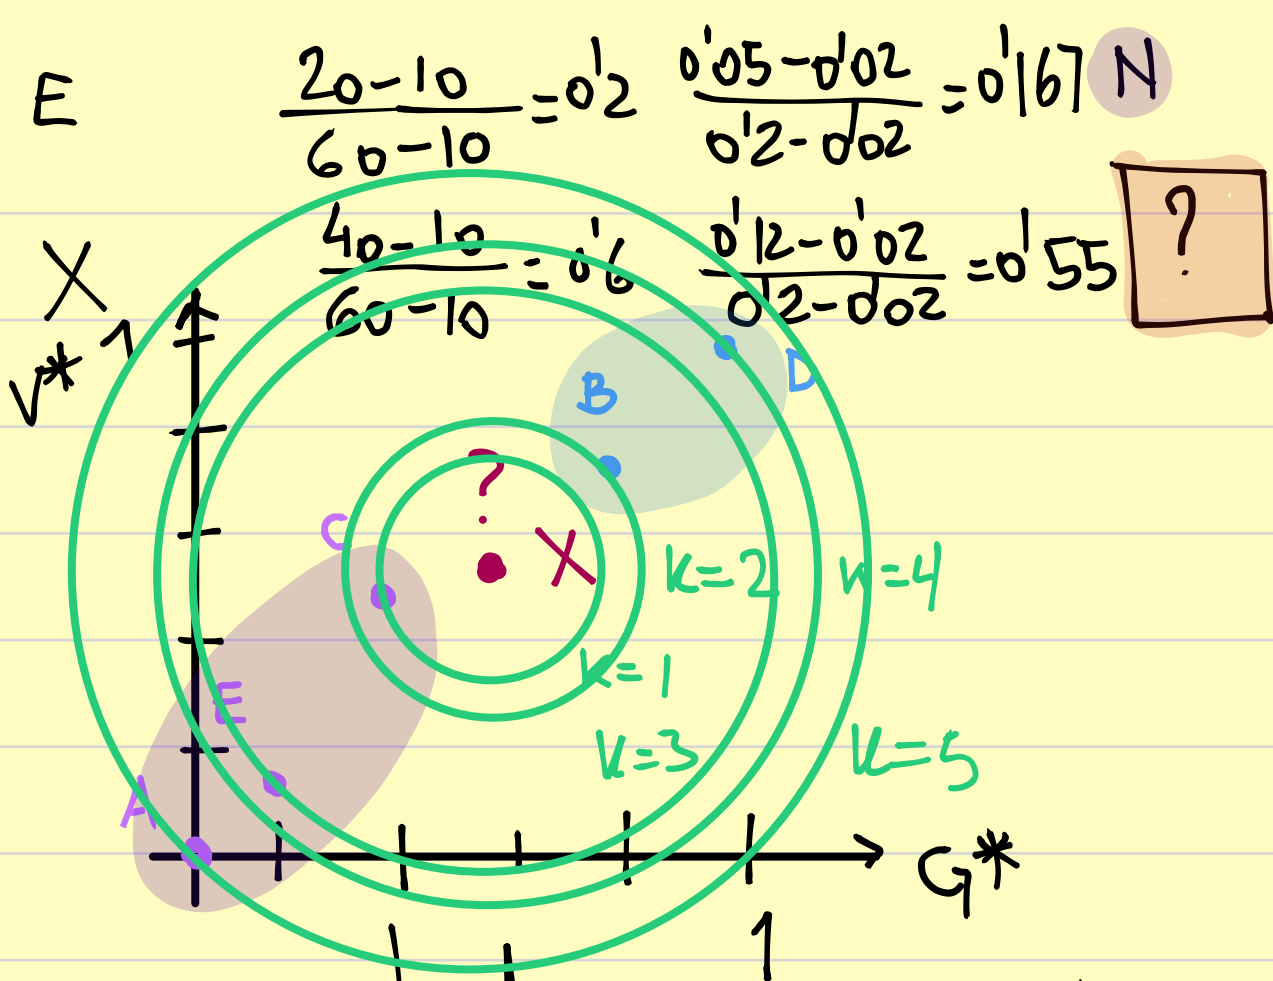 E (20-10)/(60-10) = 0'2 (0'05-0'02)/(0'2-0'02) = 0'167 N
X (40-10)/(60-10) = 0'6 (0'12-0'02)/(0'2-0'02) = 0'55 ?
V* 1
B D
?
C X K=2 K=4
E K=1
K=3 K=5
A
G*
1